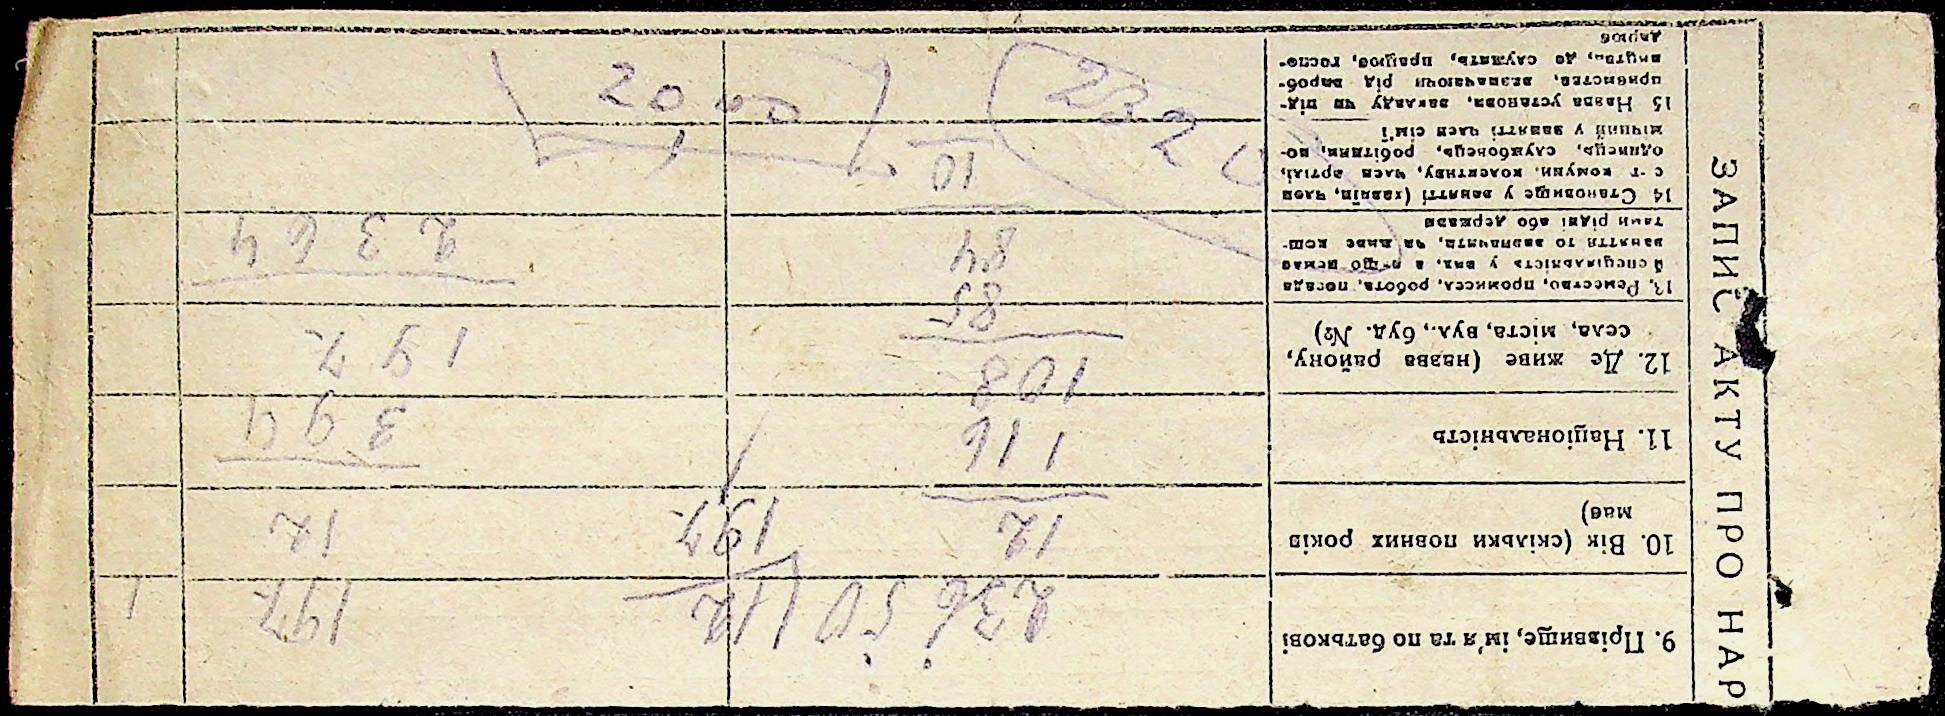 ЗАПИС АКТУ ПРО НАР
9. Прізвище, ім'я та по батькові
23650 12
197
1
10. Вік (скільки повних років
має)
12
197
12
11. Національність
116
394
12. Де живе (назва району,
села, міста, вул., буд. №)
108
197
13. Ремество, промисел, робота, посада
й спеціяльність у них, а якщо немає
заняття то зазначити, чи живе кош-
тами рідні або держави
85
84
2364
14 Становище у занятті (хазяїн, член
с-г комуни, колективу, член артілі,
одинець, службовець, робітник, по-
мічний у занятті член сім'ї
10
15 Назва установи, закладу чи під-
приємства, зазначаючи рід вироб-
ництва, де служить, працює, госпо-
дарює